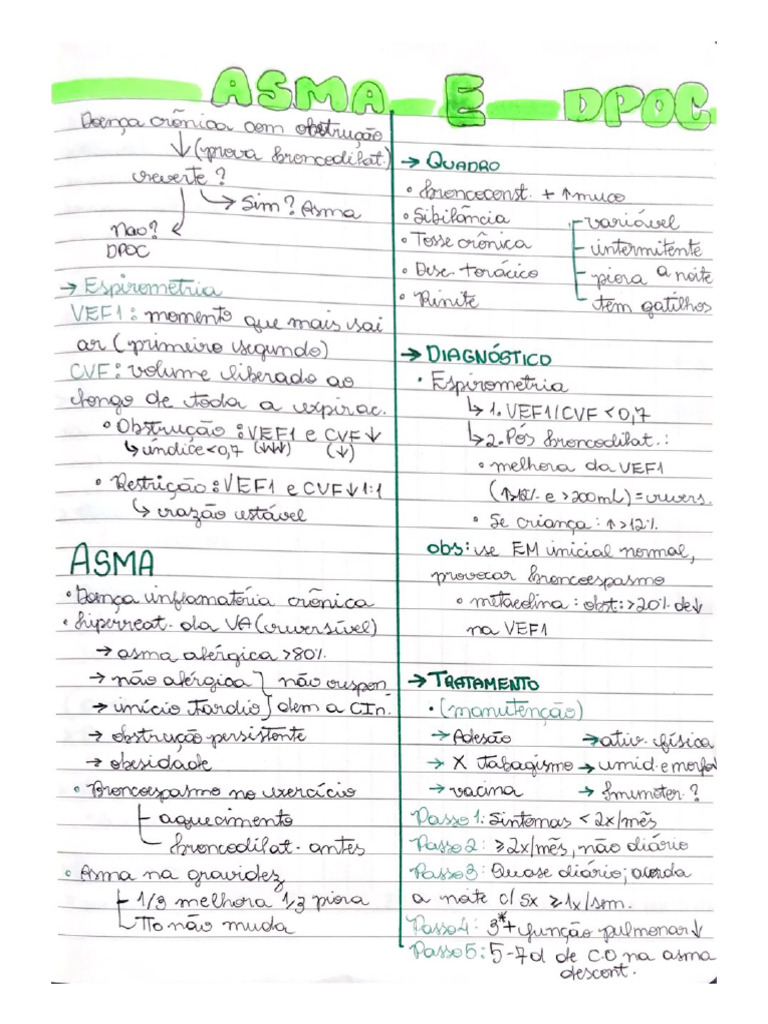 ASMA E DPOC
Doença crônica com obstrução
↓ (prova broncodilat.)
reverte?
→ Sim? Asma
Não?
DPOC
→ Espirometria
VEF1: momento que mais sai
ar (primeiro segundo)
CVF: volume liberado ao
longo de toda a expirac.
• Obstrução: VEF1 e CVF ↓
↳ índice < 0,7 (↓↓↓) (↓)
• Restrição: VEF1 e CVF ↓ 1:1
↳ razão estável
ASMA
• Doença inflamatória crônica
• hiperreat. da VA (reversível)
→ asma alérgica >80%
→ não alérgica } não respon
→ início tardio } dem a CIn.
→ obstrução persistente
→ obesidade
• Broncoespasmo no exercício
- aquecimento
- broncodilat. antes
• Asma na gravidez
- 1/3 melhora 1/3 piora
- TTo não muda
→ QUADRO
• broncoconst. + ↑muco
• Sibilância
• Tosse crônica
• Desc torácico
• Rinite
- variável
- intermitente
- piora a noite
- tem gatilhos
→ DIAGNÓSTICO
• Espirometria
↳ 1. VEF1/CVF < 0,7
↳ 2. Pós broncodilat.:
• melhora da VEF1
e >200mL) = revers.
• Se criança: ↑>12%
obs: se EM inicial normal,
provocar broncoespasmo
• metacolina: obst: >20% de ↓
na VEF1
→ TRATAMENTO
• (manutenção)
→ Adesão → ativ. física
→ X tabagismo → umid. e mofo
→ vacina → Imunoter.?
Passo 1: Sintomas < 2x/mês
Passo 2: ≥2x/mês, não diário
Passo 3: Quase diário; acorda
a noite c/ Sx ≥1x/sem.
Passo 4: 3* + função pulmonar ↓
Passo 5: 5-7d de C.O na asma
descont.